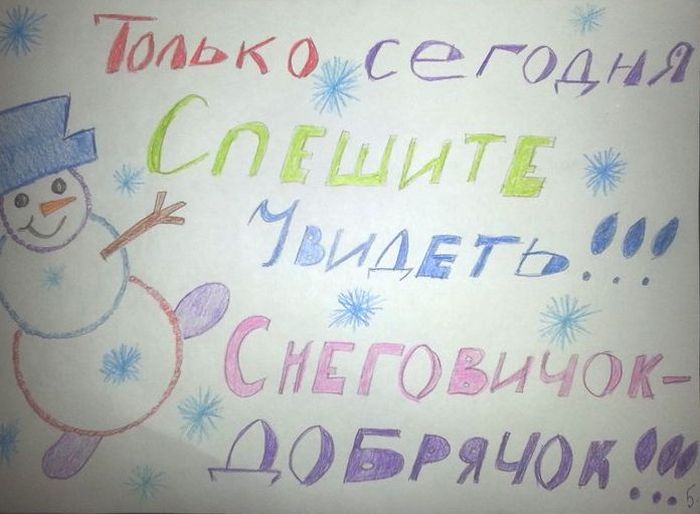 Только сегодня
Спешите
Увидеть!!!
Снеговичок-
добрячок!!!
5